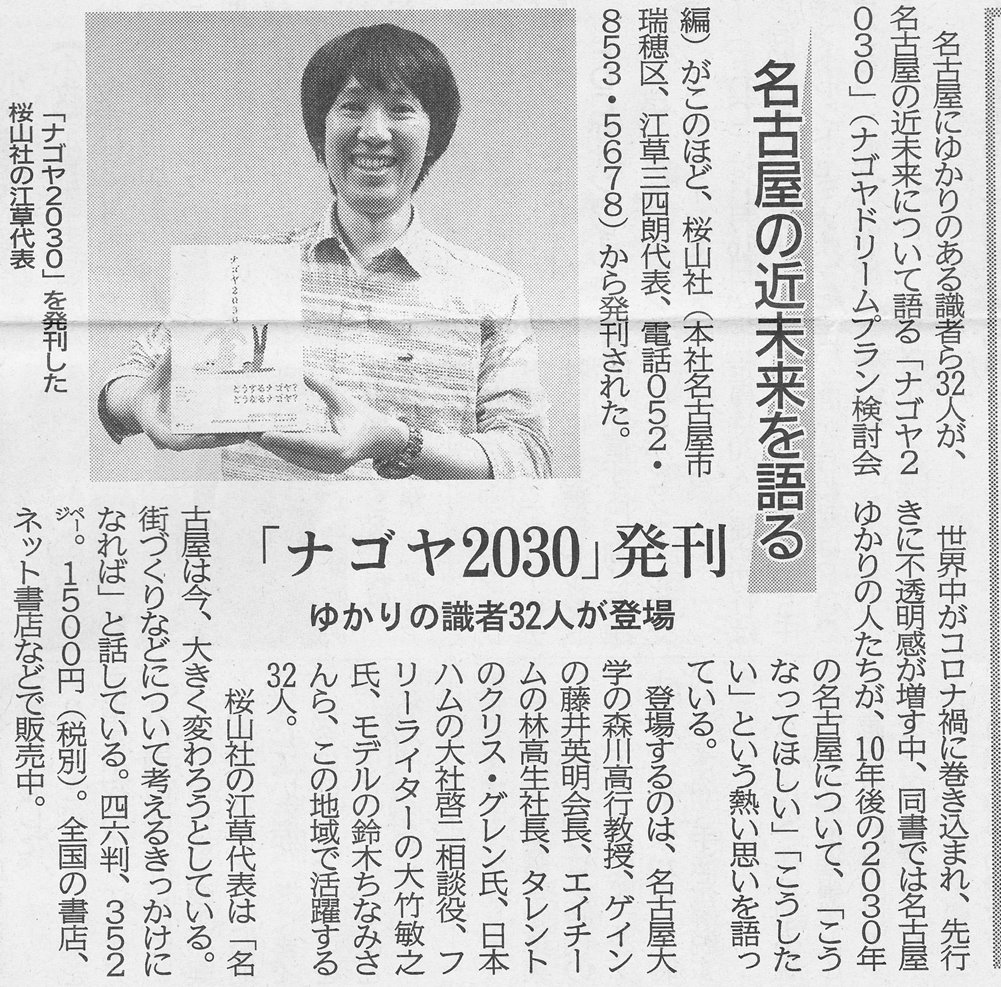 名古屋の近未来を語る
「ナゴヤ2030」発刊
ゆかりの識者32人が登場
名古屋にゆかりのある識者ら32人が、
名古屋の近未来について語る「ナゴヤ2
030」（ナゴヤドリームプラン検討会
編）がこのほど、桜山社（本社名古屋市
瑞穂区、江草三四朗代表、電話052・
853・5678）から発刊された。
世界中がコロナ禍に巻き込まれ、先行
きに不透明感が増す中、同書では名古屋
ゆかりの人たちが、10年後の2030年
の名古屋について、「こう
なってほしい」「こうした
い」という熱い思いを語っ
ている。
登場するのは、名古屋大
学の森川高行教授、ゲイン
の藤井英明会長、エイチー
ムの林高生社長、タレント
のクリス・グレン氏、日本
ハムの大社啓二相談役、フ
リーライターの大竹敏之
氏、モデルの鈴木ちなみさ
んら、この地域で活躍する
32人。
桜山社の江草代表は「名
古屋は今、大きく変わろうとしている。
街づくりなどについて考えるきっかけに
なれば」と話している。四六判、352
ページ。1500円（税別）。全国の書店、
ネット書店などで販売中。
「ナゴヤ2030」を発刊した
桜山社の江草代表
ナゴヤ2030
どうするナゴヤ？
どうなるナゴヤ？